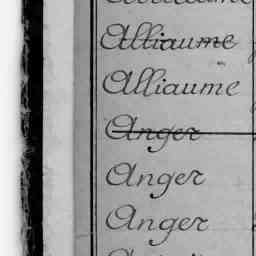 Alliaume
Alliaume
Anger
Anger
Anger